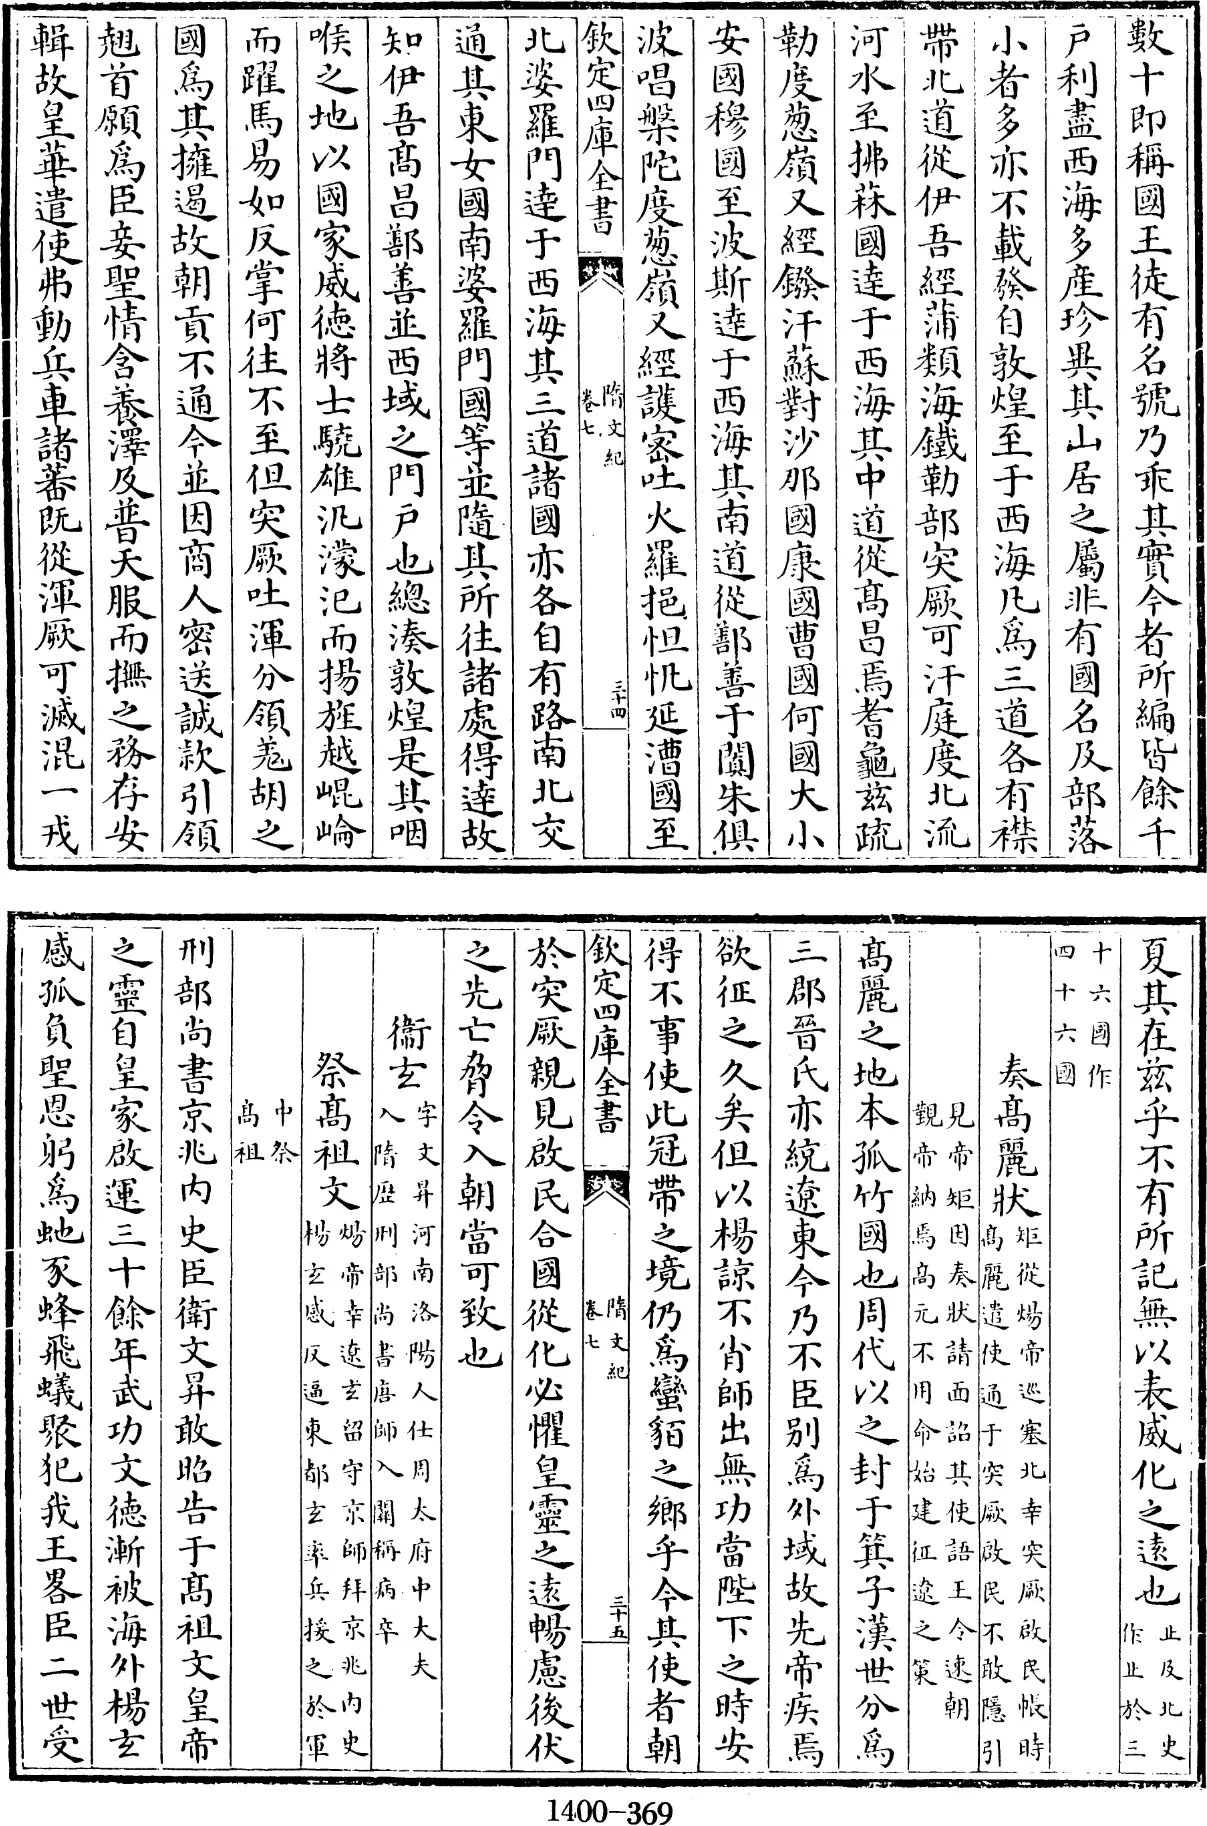 數十即稱國王徒有名號乃乖其實今者所編皆餘千
戸利盡西海多産珍異其山居之屬非有國名及部落
小者多亦不載發自敦煌至于西海凡爲三道各有襟
帶北道從伊吾經蒲類海鐵勒部突厥可汗庭度北流
河水至拂菻國逹于西海其中道從髙昌焉耆龜兹疏
勒度葱嶺又經鏺汗蘇對沙那國康國曹國何國大小
安國穆國至波斯逹于西海其南道從鄯善于闐朱俱
波唱槃陀度葱嶺又經護密吐火羅挹怛忛延漕國至
欽定四庫全書
隋文紀
卷七
三十四
北婆羅門逹于西海其三道諸國亦各自有路南北交
通其東女國南婆羅門國等並隨其所往諸處得逹故
知伊吾髙昌鄯善並西域之門戸也總湊敦煌是其咽
喉之地以國家威徳將士驍雄汎濛汜而揚旌越崐崘
而躍馬易如反掌何往不至但突厥吐渾分領羌胡之
國爲其擁遏故朝貢不通今並因商人密送誠款引領
翹首願爲臣妾聖情含養澤及普天服而撫之務存安
輯故皇華遣使弗動兵車諸蕃既從渾厥可滅混一戎
夏其在兹乎不有所記無以表威化之逺也
止及北史
作止於三
十六國作
四十六國
奏髙麗狀
矩從煬帝巡塞北幸突厥啟民帳時
髙麗遣使通于突厥啟民不敢隱引
見帝矩因奏狀請面詔其使語王令速朝
覲帝納焉髙元不用命始建征遼之策
髙麗之地本孤竹國也周代以之封于箕子漢世分爲
三郡晉氏亦統遼東今乃不臣别爲外域故先帝疾焉
欲征之久矣但以楊諒不肖師出無功當陛下之時安
得不事使此冠帶之境仍爲蠻貊之鄉乎今其使者朝
欽定四庫全書
隋文紀
卷七
三十五
於突厥親見啟民合國從化必懼皇靈之逺暢慮後伏
之先亡脅令入朝當可致也
衞玄
字文昇河南洛陽人仕周太府中大夫
入隋歴刑部尚書唐師入關稱病卒
祭髙祖文
煬帝幸遼玄留守京師拜京兆内史
楊玄感反逼東都玄率兵援之於軍
中祭
髙祖
刑部尚書京兆内史臣衛文昇敢昭告于髙祖文皇帝
之靈自皇家啟運三十餘年武功文德漸被海外楊玄
感孤負聖恩躬爲虵豕蜂飛蟻聚犯我王畧臣二世受
1400-369